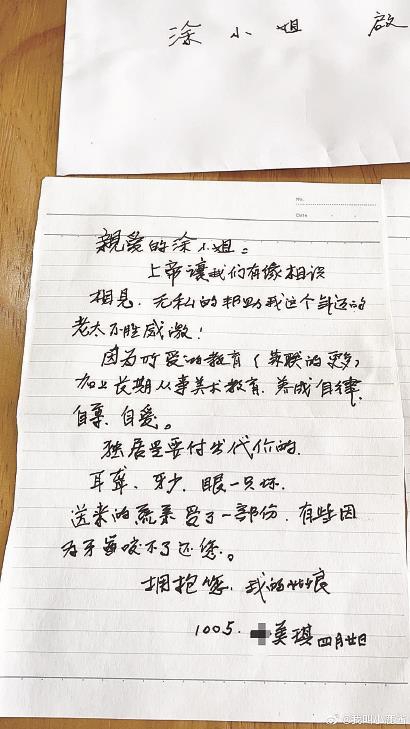 涂小姐 启
No.
Date
親爱的涂小姐：
上帝讓我们有缘相识
相見，无私的帮助我这个年迈的
老太不胜感激！
因为所受的教育（苏联的更多）
加上长期从事美术教育，养成自律，
自尊、自爱。
独居是要付出代价的，
耳聋、牙少、眼一只坏，
送来的蔬菜受了一部份，有些因
为牙齿咬不了还您。
拥抱您，我的姑娘
1005. 美琪 四月廿日
@我叫小